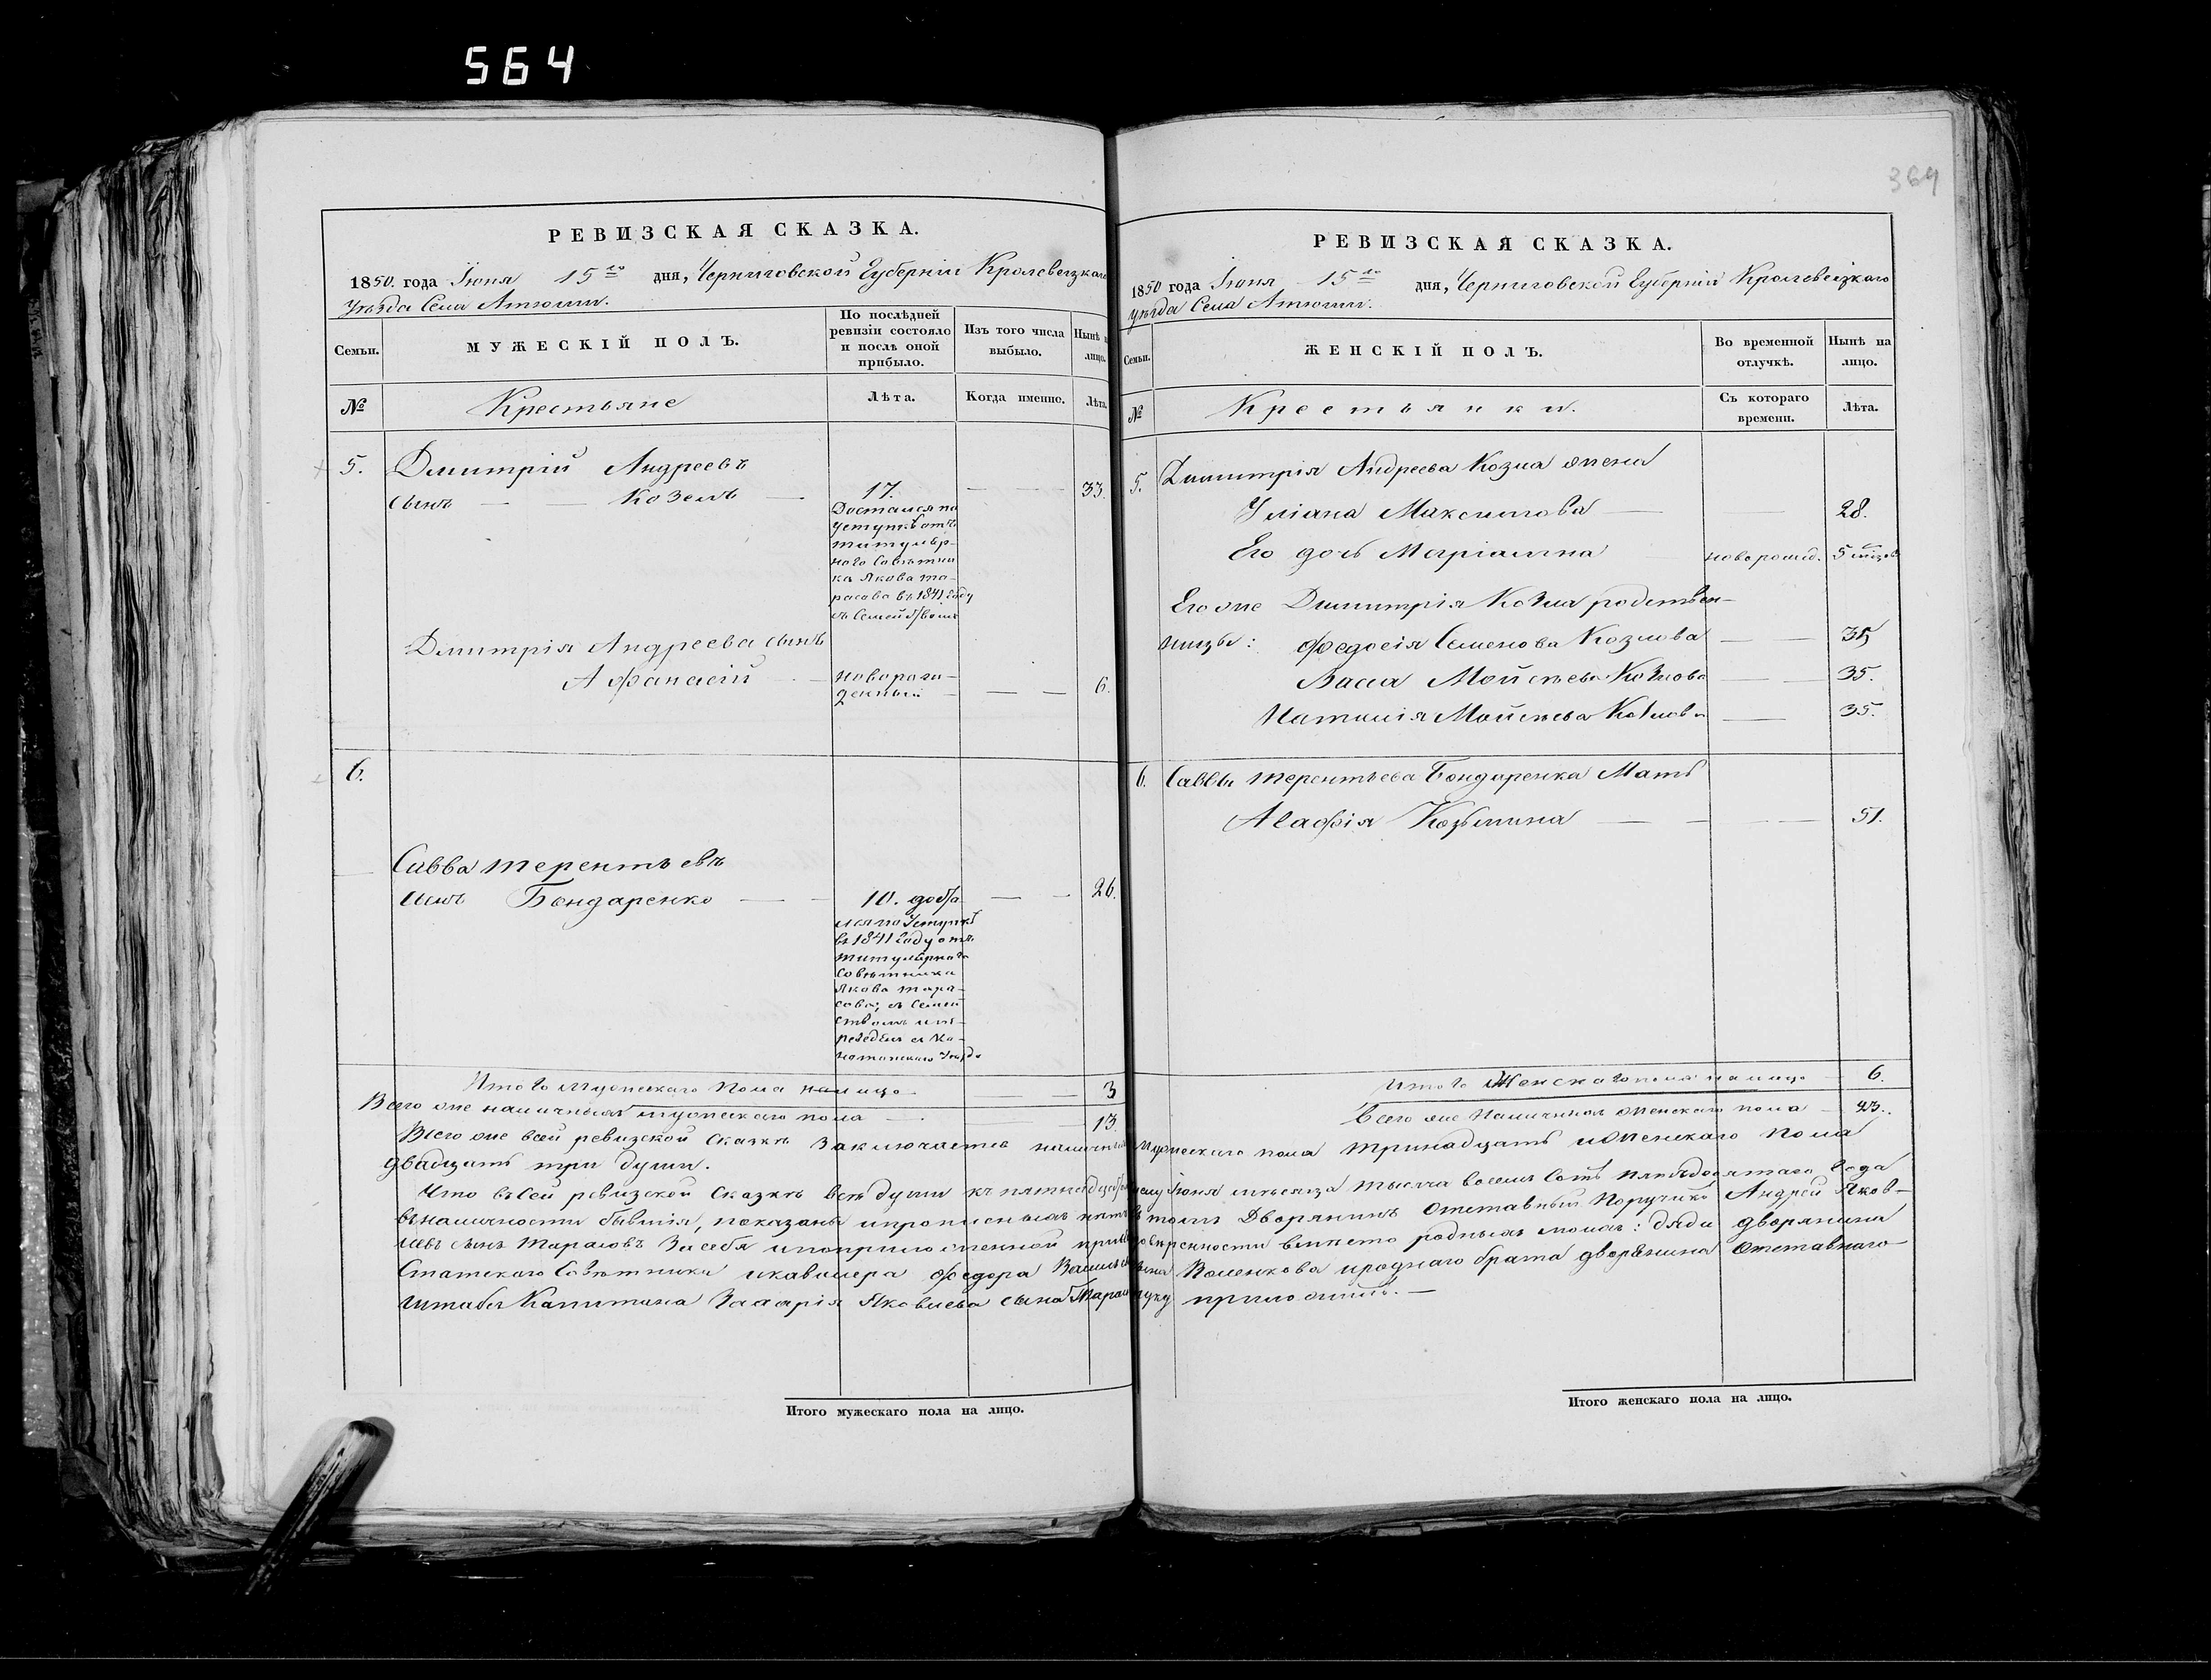 564
369
РЕВИЗСКАЯ СКАЗКА.
1850. года Іюня 15го дня, Черниговской Губерніи Кролевецкаго
Уѣзда Села Атюши.
Семьи.
МУЖЕСКІЙ ПОЛЪ.
По послѣдней
ревизіи состояло
и послѣ оной
прибыло.
Изъ того числа
выбыло.
Нынѣ
лицо.
№
Крестьяне
Лѣта.
Когда именно.
Лѣта.
5. Дмитрій Андреевъ
сынъ — — Козелъ — 17. — — — 33.
Достался по
Уступкѣ отъ
титуляр-
наго Совѣтни
ка Якова Та-
расова въ 1841 году
Дмитрія Андреева сынъ
Афанасій — новорож-
денный — — — 6.
6.
Савва Терентьевъ
сынъ Бондаренко — — 10. доста — — 26.
лся по Уступкѣ
въ 1841 году отъ
титулярнаго
Совѣтника
Якова Тара-
сова; съ Семей
ствомъ и пе-
реведенъ съ Ко-
нотопскаго Уѣзда
Итого мужескаго пола налицо — — 3
Всего же наличныхъ мужескаго пола — 13.
РЕВИЗСКАЯ СКАЗКА.
1850 года Іюня 15го дня, Черниговской Губерніи Кролевецкаго
Уѣзда Села Атюши.
Семьи.
ЖЕНСКІЙ ПОЛЪ.
Во временной
отлучкѣ.
Нынѣ на
лицо.
№
Крестьянки.
Съ котораго
времени.
Лѣта.
5. Димитрія Андреева Козла жена
Уліана Максимова — — 28.
Его дочь Маріанна новорожд. 5 мѣсяцев
Его же Димитрія Козла родствен-
ницы: Федосія Семенова Козлова — — 35
Васса Мойсѣева Козлова — — 35.
Наталія Мойсѣева Козлова — 35.
6. Саввы Терентьева Бондаренка Мать
Агафія Козьмина — — — — 51.
Итого Женскаго пола налицо — 6.
Всего же Наличныхъ женскаго пола — 23.
Всего же всей ревизской Сказкѣ Заключается наличныхъ мужескаго пола тринадцать и женскаго пола
двадцать три души.
Что въ сей ревизской Сказкѣ всѣ души къ пятнадцатому Іюня мѣсяца тысяча восемь сотъ пятьдесятаго года
въ наличности бывшія, показаны и прописныхъ нѣтъ въ томъ Дворянинъ Отставный Поручикъ Андрей Яков-
левъ сынъ Тарасовъ За себя и по приложенной при довѣренности вмѣсто родныхъ моихъ: дяди дворянина
Статскаго Совѣтника и кавалера Федора Васильева сына и роднаго брата дворянина Отставнаго
Штабсъ Капитана Захарія Яковлева сына руку приложилъ. —
Итого мужескаго пола на лицо.
Итого женскаго пола на лицо.